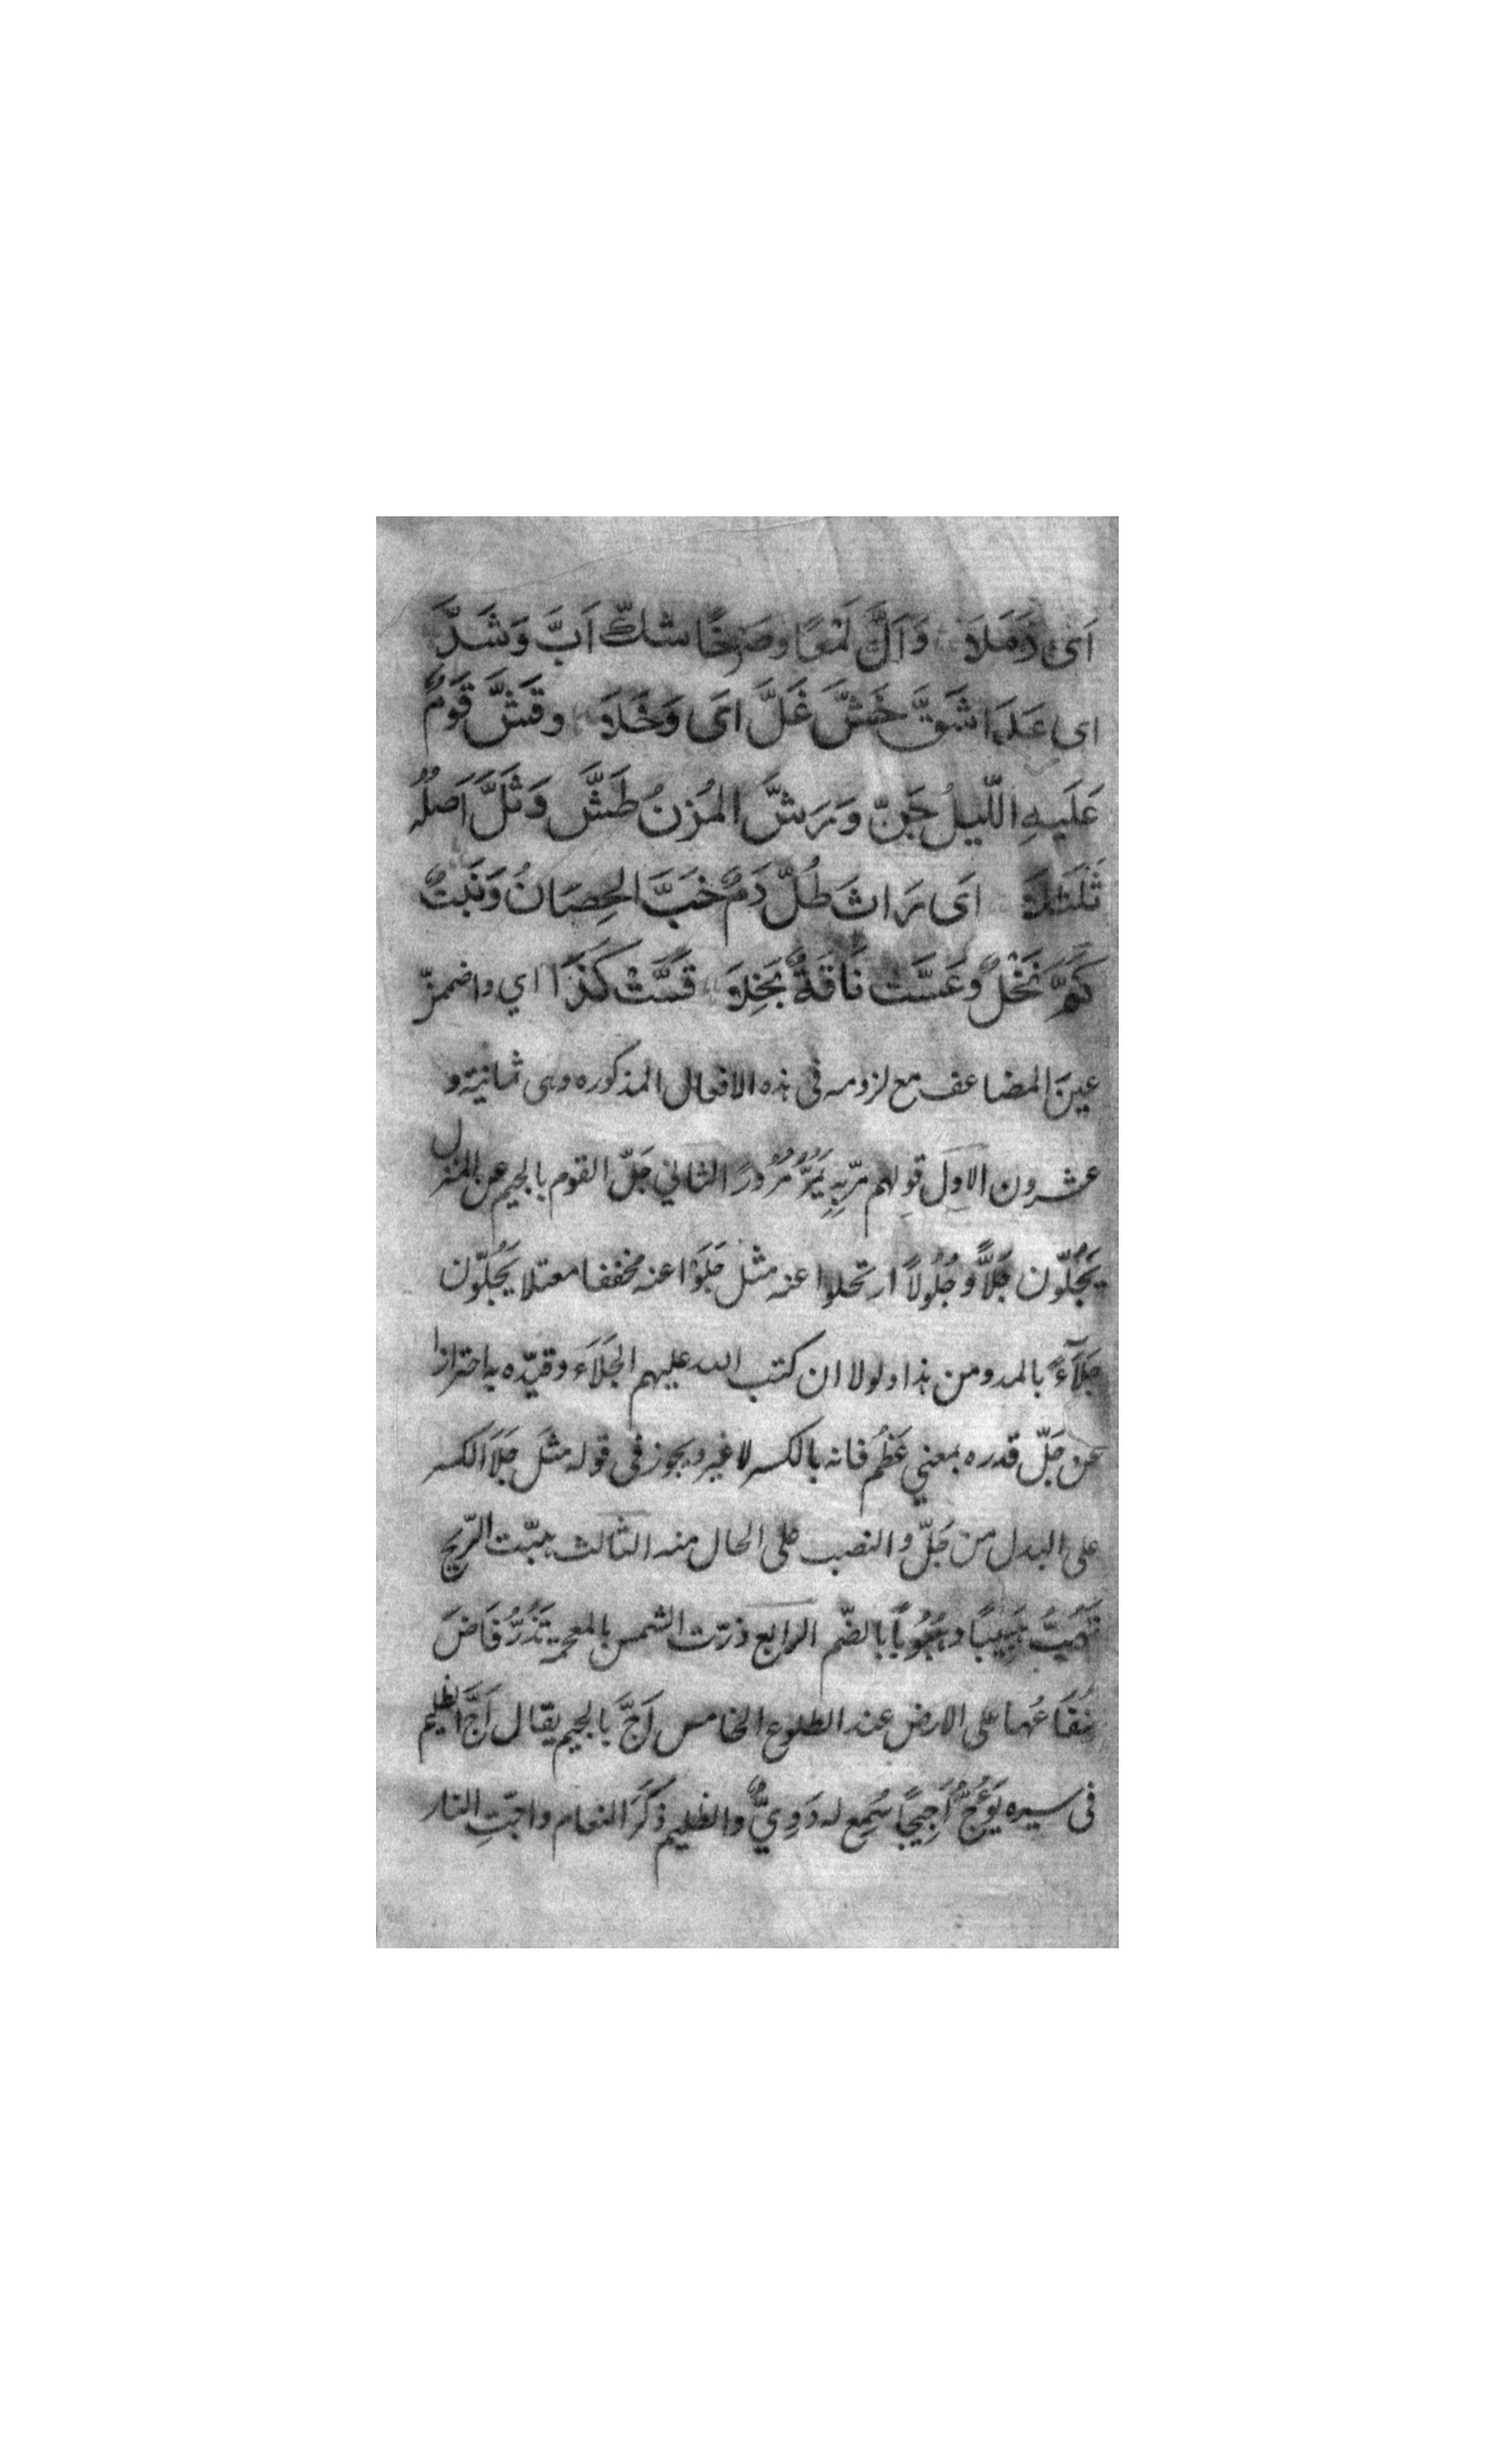 اَى ذَمَلاَ وَاَلَّ لَمْعًا وصَرِخًا شكّ اَبَّ وَشَدَّ
اى عَدَا شَقَّ خَشَّ غَلَّ اىَ وَخَلاَ وقَشَّ قَومٌ
عَلَيهِ اللّيلُ جَنّ وَرَشَّ المُزنُ طَشَّ وَثَلَّ اَصلُهُ
ثَلَلاَ اَى رَاثَ طُلَّ دَمٌ خَبَّ الحِصَانُ وَنَبتٌ
كَمَّ نَخْلٌ وعَسَّت نَاقَةٌ بَخِلاَ قَسَّتْ كَذَا اي واضممنّ
عينَ المضاعف مع لزومه فى هذه الافعال المذكوره وهى ثمانية و
عشرون الاول قولهم مرّ بِهِ يَمُرُّ مُرُورًا الثاني جَلّ القوم بالجيم عن المنزل
يَجُلّون جَلاًّ وجُلُولاً ارتحلوا عنه مثل جَلَوْا عنه مخففا معتلا يَجلُون
جَلآءً بالمد ومن هذا ولولا ان كتب الله عليهم الجَلاَء وقيّده به احترازا
عن جَلّ قدره بمعنى عَظُم فانه بالكسر لا غير ويجوز فى قوله مثَل جَلاَ الكسر
على البدل من جَلّ والنصب على الحال منه الثالث هبّت الرّيح
تَهُبُّ هَبِيبًا وهُبُوبًا بالضّم الرابع ذرّت الشمس بالمعجمة تَذُرُّ فَاضَ
شُعَاعُها على الارض عند الطلوع الخامس اَجَّ بالجيم يقال اَجَّ الظليم
فى سيره يَؤُجُّ اَجِيجًا سُمِع له دَوِيٌّ والظليم ذكَرَ النعام واجّتِ النار